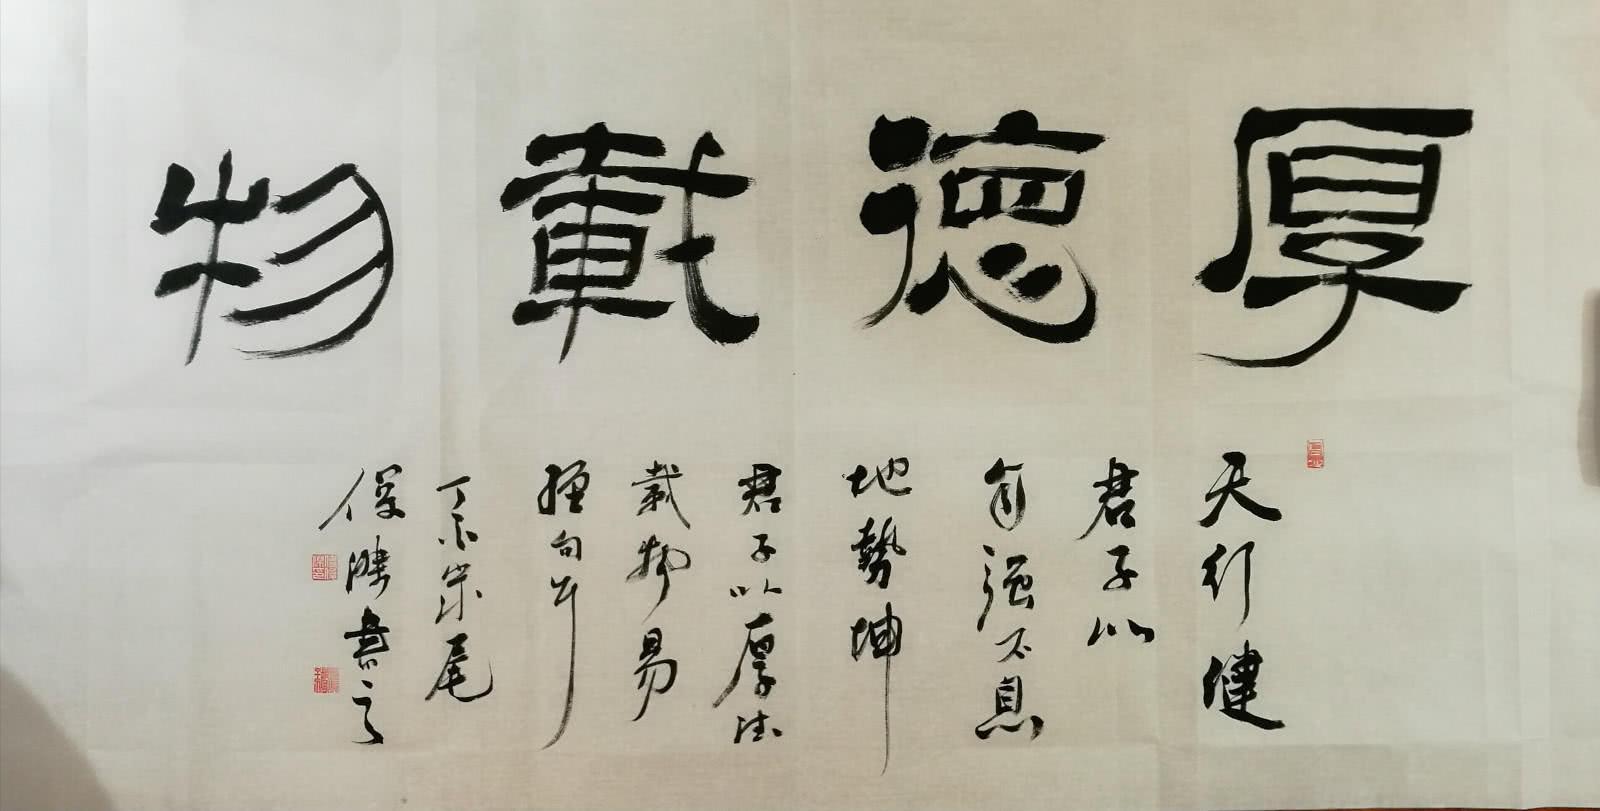 厚德載物
天行健
君子以
自强不息
地勢坤
君子以厚德
載物易
經句
丁亥歲尾
書之